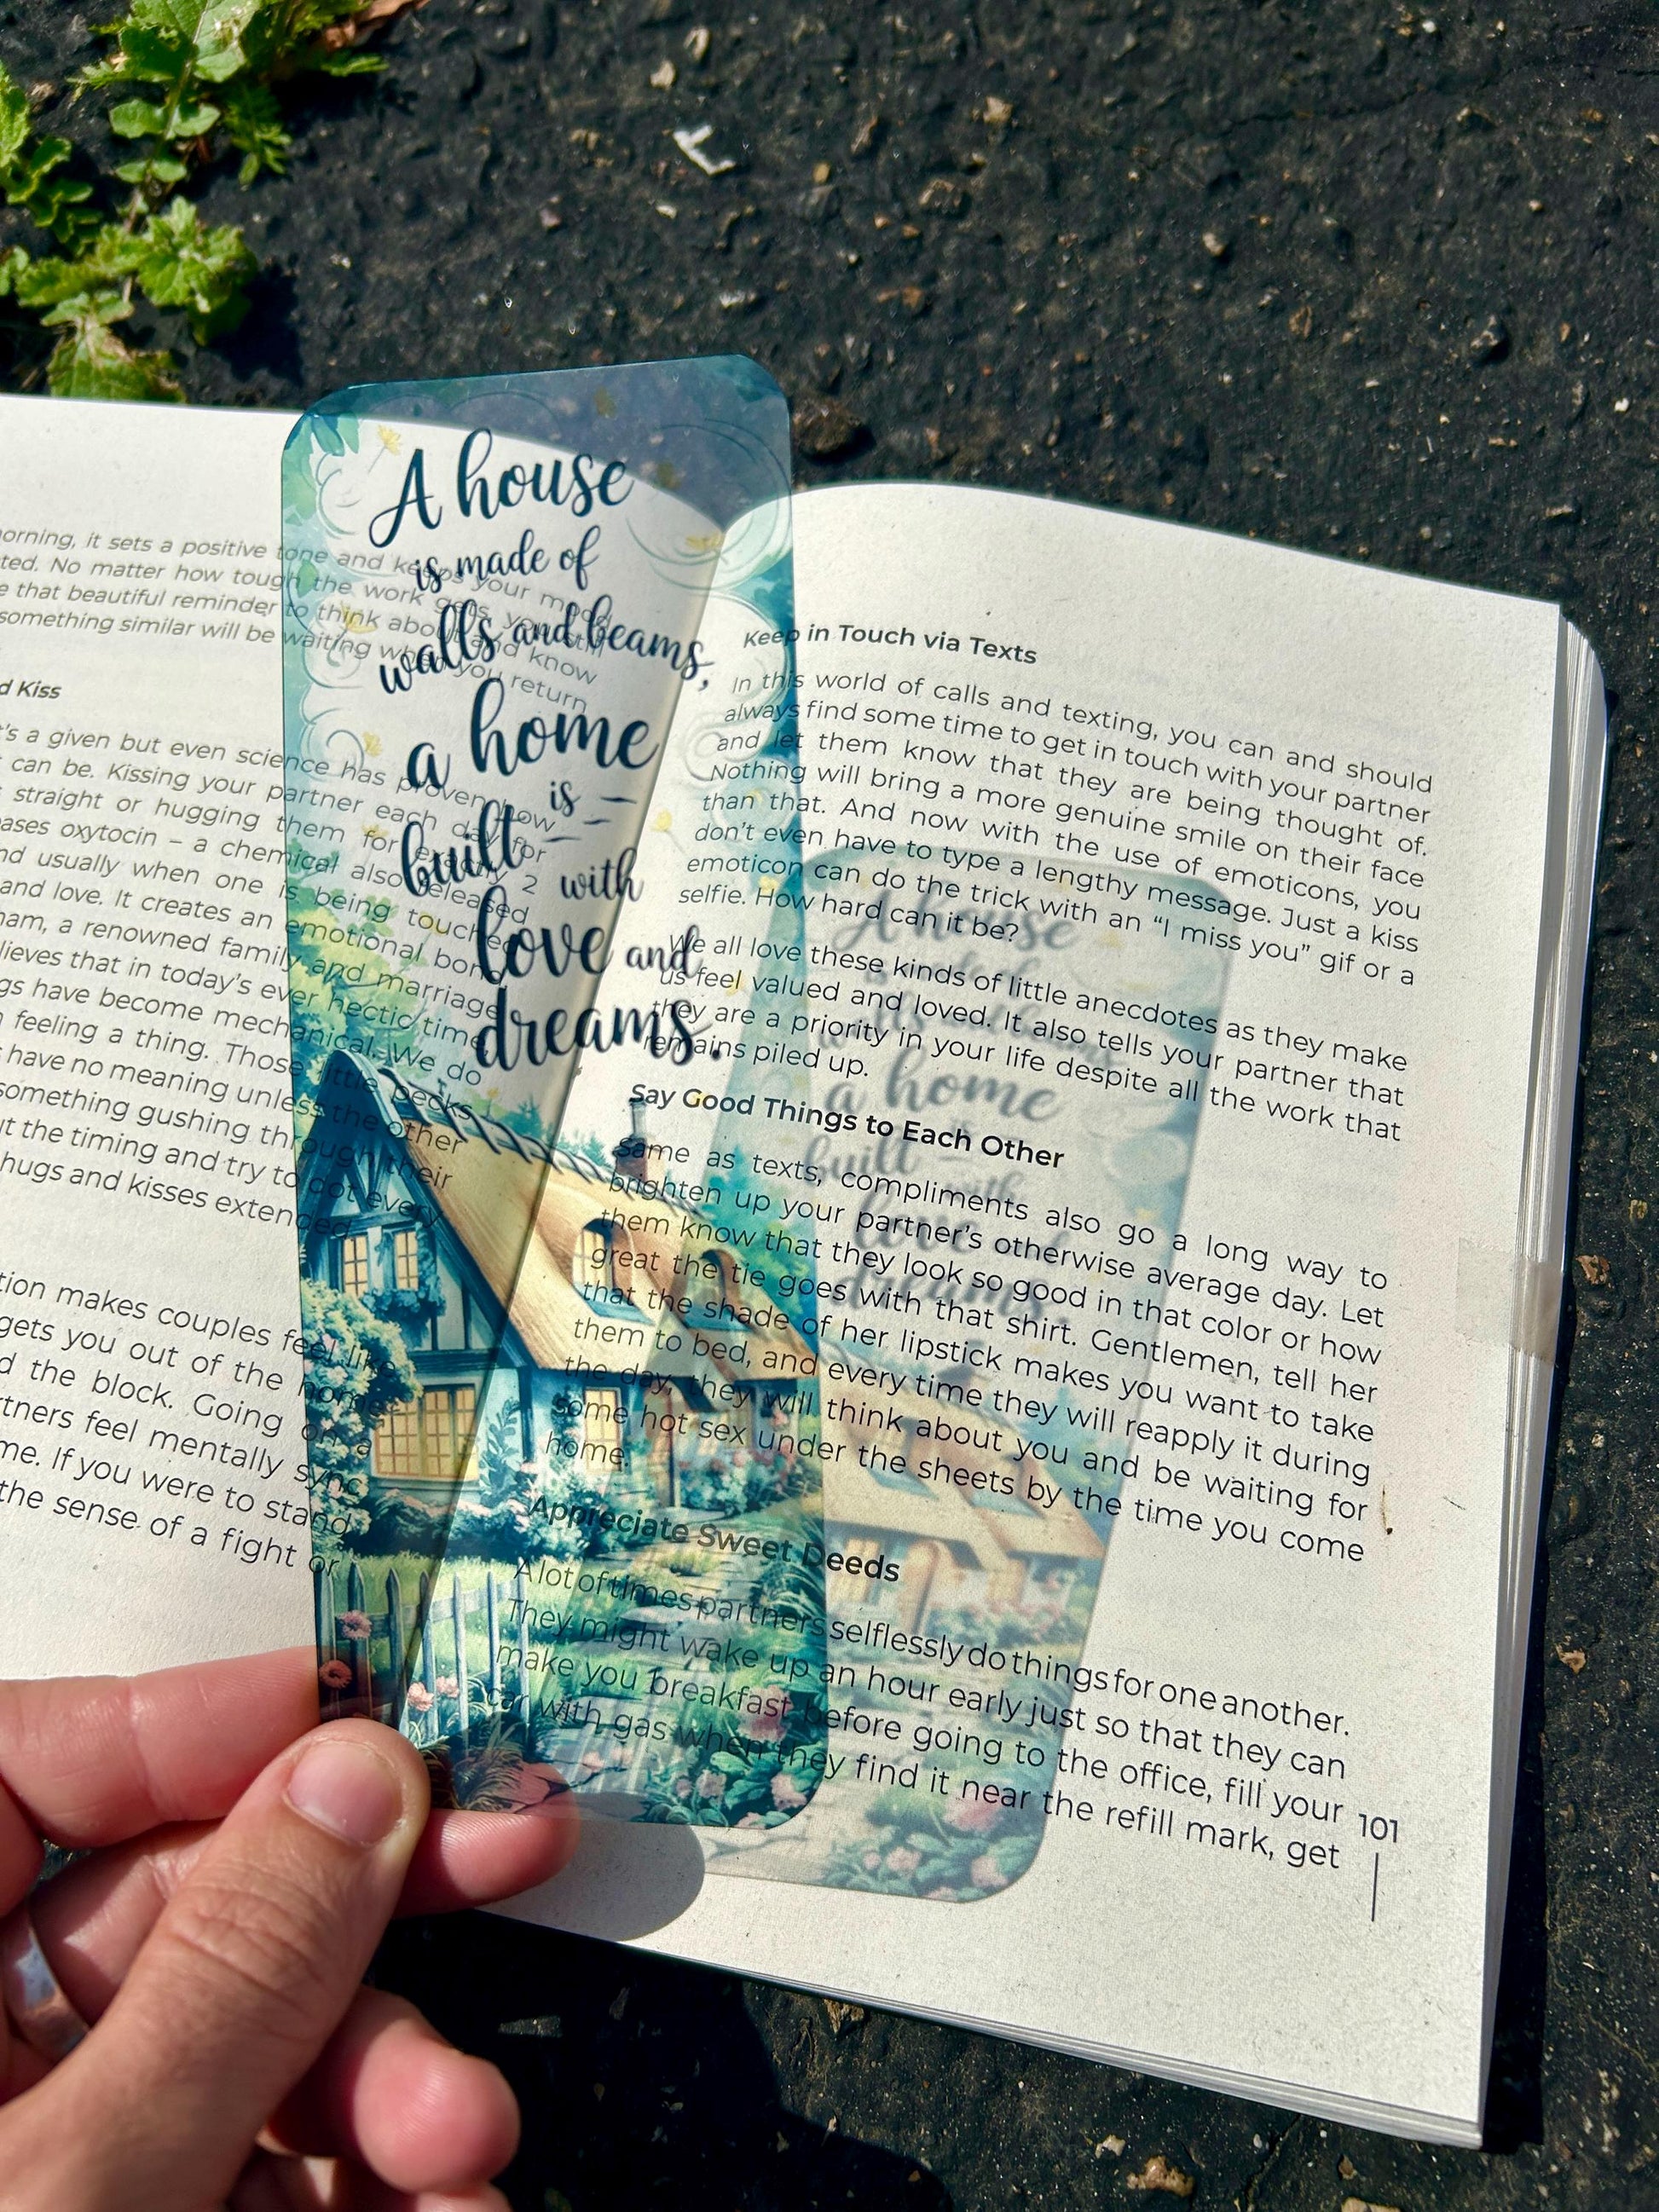 A house
is made of
walls and beams,
a home
is
built
with
love and
dreams.
orning, it sets a positive tone and keeps your mood
ted. No matter how tough the work gets, you still
e that beautiful reminder to think about and know
something similar will be waiting when you return
d Kiss
t's a given but even science has proven how
can be. Kissing your partner each day for
straight or hugging them for exactly 2
ases oxytocin – a chemical also released
nd usually when one is being touched
and love. It creates an emotional bond
ham, a renowned family and marriage
lieves that in today's ever hectic time,
gs have become mechanical. We do
feeling a thing. Those little pecks
have no meaning unless the other
something gushing through their
ut the timing and try to not every
hugs and kisses extended
tion makes couples feel like
gets you out of the home
d the block. Going on a
rtners feel mentally sync
me. If you were to stand
the sense of a fight or
Keep in Touch via Texts
In this world of calls and texting, you can and should
always find some time to get in touch with your partner
and let them know that they are being thought of.
Nothing will bring a more genuine smile on their face
than that. And now with the use of emoticons, you
don't even have to type a lengthy message. Just a kiss
emoticon can do the trick with an “I miss you” gif or a
selfie. How hard can it be?
We all love these kinds of little anecdotes as they make
us feel valued and loved. It also tells your partner that
they are a priority in your life despite all the work that
remains piled up.
Say Good Things to Each Other
Same as texts, compliments also go a long way to
brighten up your partner's otherwise average day. Let
them know that they look so good in that color or how
great the tie goes with that shirt. Gentlemen, tell her
that the shade of her lipstick makes you want to take
them to bed, and every time they will reapply it during
the day, they will think about you and be waiting for
some hot sex under the sheets by the time you come
home.
Appreciate Sweet Deeds
A lot of times partners selflessly do things for one another.
They might wake up an hour early just so that they can
make you breakfast before going to the office, fill your
car with gas when they find it near the refill mark, get
101